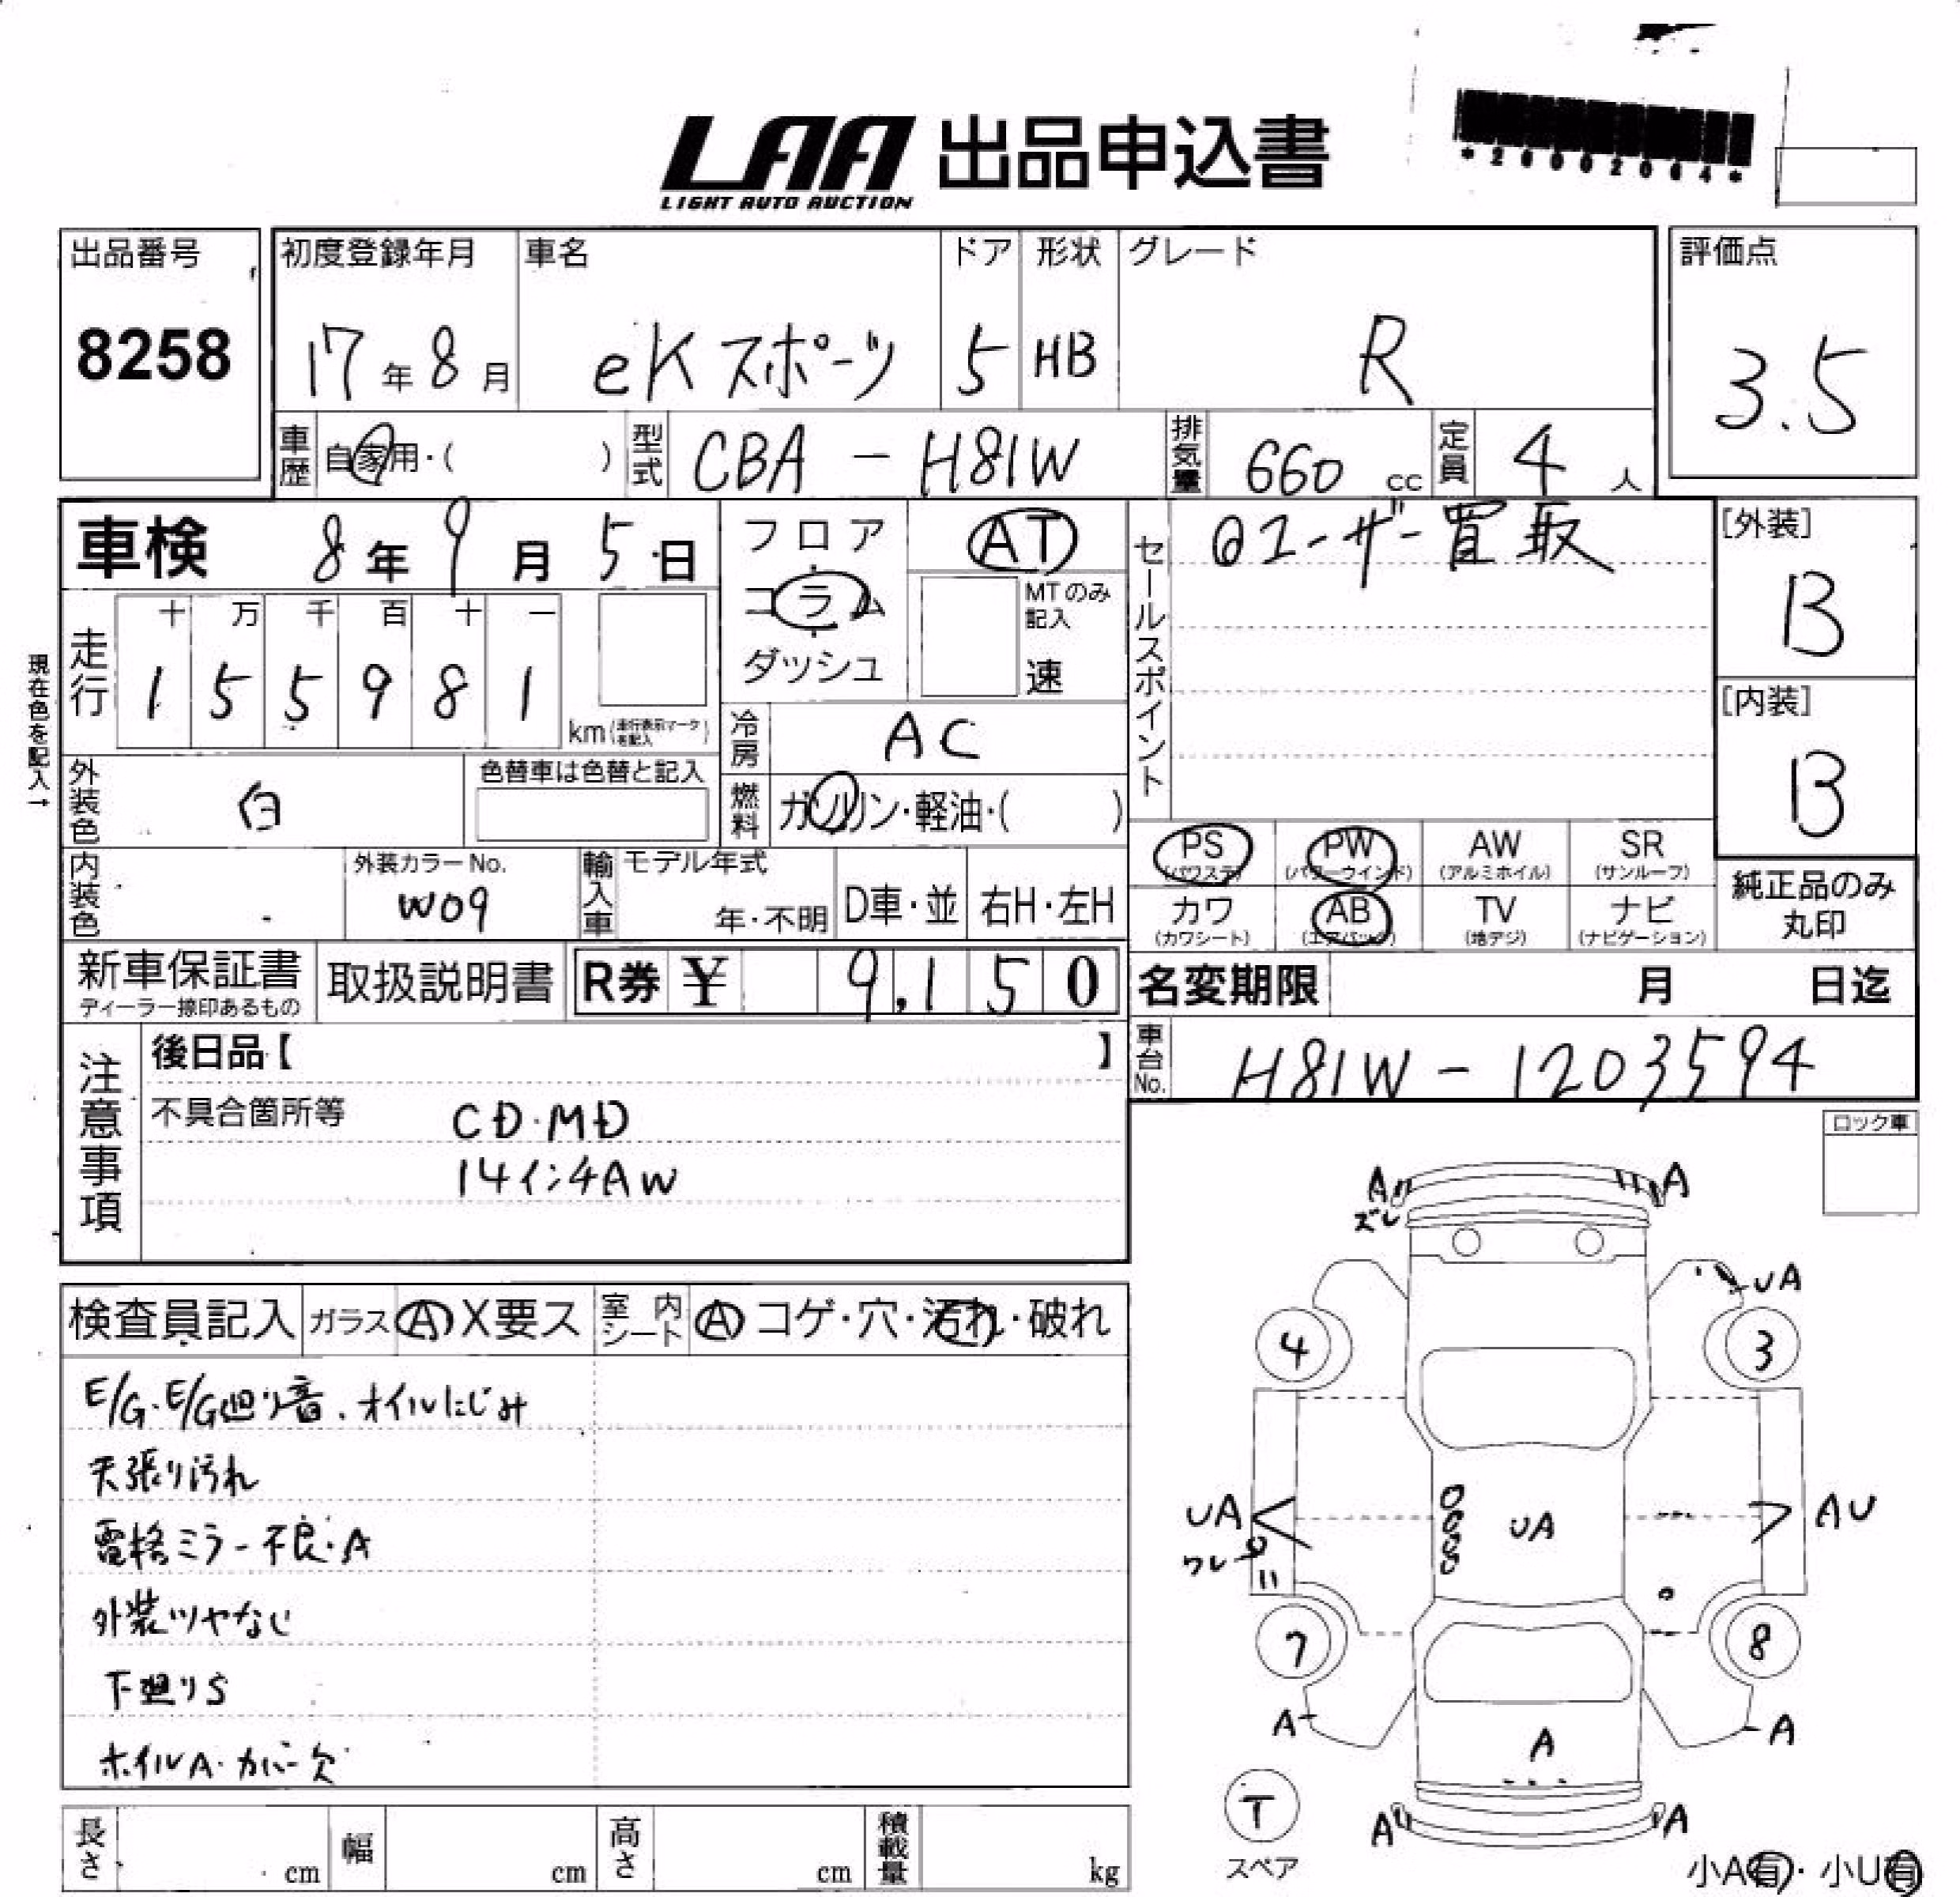 LAA 出品申込書
LIGHT AUTO AUCTION
*26002064*
出品番号
8258
初度登録年月
17年8月
車名
eKスポーツ
ドア
5
形状
HB
グレード
R
評価点
3.5
車歴 自家用・( )
型式 CBA - H81W
排気量 660 cc
定員 4 人
車検 8年9月5日
現在色を記入→
走行
十 万 千 百 十 一
1 5 5 9 8 1
km(走行表示マークを記入)
フロア
コラム
ダッシュ
AT
MTのみ記入
速
冷房 AC
燃料 ガソリン・軽油・( )
外装色 白
色替車は色替と記入
内装色
外装カラーNo.
W09
輸入車 モデル年式
年・不明
D車・並
右H・左H
セールスポイント
ユーザー買取
[外装]
B
[内装]
B
PS (パワステ)
PW (パワーウインド)
AW (アルミホイル)
SR (サンルーフ)
カワ (カワシート)
AB (エアバック)
TV (地デジ)
ナビ (ナビゲーション)
純正品のみ
丸印
新車保証書
ディーラー捺印あるもの
取扱説明書
R券 ¥ 9,150
名変期限 月 日迄
車台No. H81W - 1203594
注意事項
後日品【 】
不具合箇所等
CD・MD
14インチAW
ロック車
検査員記入 ガラス A X要ス
室内シート A コゲ・穴・汚れ・破れ
E/G・E/G廻り音、オイルにじみ
天張り汚れ
電格ミラー不良・A
外装ツヤなし
下廻りS
ホイルA・カバー欠
A
ズレ
A
UA
4
3
UA
ワレ
UA
AU
7
8
A
A
A
T
スペア
A
A
小A有・小U有
長さ cm
幅 cm
高さ cm
積載量 kg